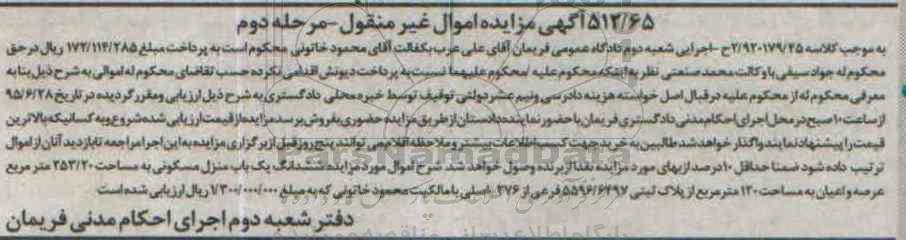 ۵۱۲/۶۵ آگهی مزایده اموال غیر منقول - مرحله دوم
به موجب کلاسه ۲/۹۲۰۱۷۹/۴۵ح - اجرایی شعبه دوم دادگاه عمومی فریمان آقای علی عرب بکفالت آقای محمود خاتونی محکوم است به پرداخت مبلغ ۱۷۲/۱۱۴/۲۸۵ ریال در حق
محکوم له جواد سیفی با وکالت محمد صنعتی نظر به اینکه محکوم علیه /محکوم علیهما نسبت به پرداخت دیونش اقدامی نکرده حسب تقاضای محکوم له اموالی به شرح ذیل بنا به
معرفی محکوم له از محکوم علیه در قبال اصل خواسته هزینه دادرسی و نیم عشر دولتی توقیف توسط خبره محلی دادگستری به شرح ذیل ارزیابی و مقرر گردیده در تاریخ ۹۵/۶/۲۸
از ساعت ۱۰ صبح در محل اجرای احکام مدنی دادگستری فریمان با حضور نماینده دادستان از طریق مزایده حضوری بفروش برسد مزایده از قیمت ارزیابی شده شروع و به کسانیکه بالاترین
قیمت را پیشنهاد نمایند واگذار خواهد شد طالبین به خرید جهت کسب اطلاعات بیشتر و ملاحظه اقلام می توانند پنج روز قبل از برگزاری مزایده به این اجرا مراجعه تا بازدید آنان از اموال
ترتیب داده شود ضمنا حداقل ۱۰ درصد از بهای مورد مزایده نقدا از برنده وصول خواهد شد. شرح اموال مورد مزایده ششدانگ یک باب منزل مسکونی به مساحت ۲۵۳/۲۰ متر مربع
عرصه و اعیان به مساحت ۱۲۰ متر مربع از پلاک ثبتی ۵۵۹۶/۶۴۹۷ فرعی از ۲۷۶ اصلی با مالکیت محمود خاتونی که به مبلغ ۱/۳۰۰/۰۰۰/۰۰۰ ریال ارزیابی شده است
دفتر شعبه دوم اجرای احکام مدنی فریمان